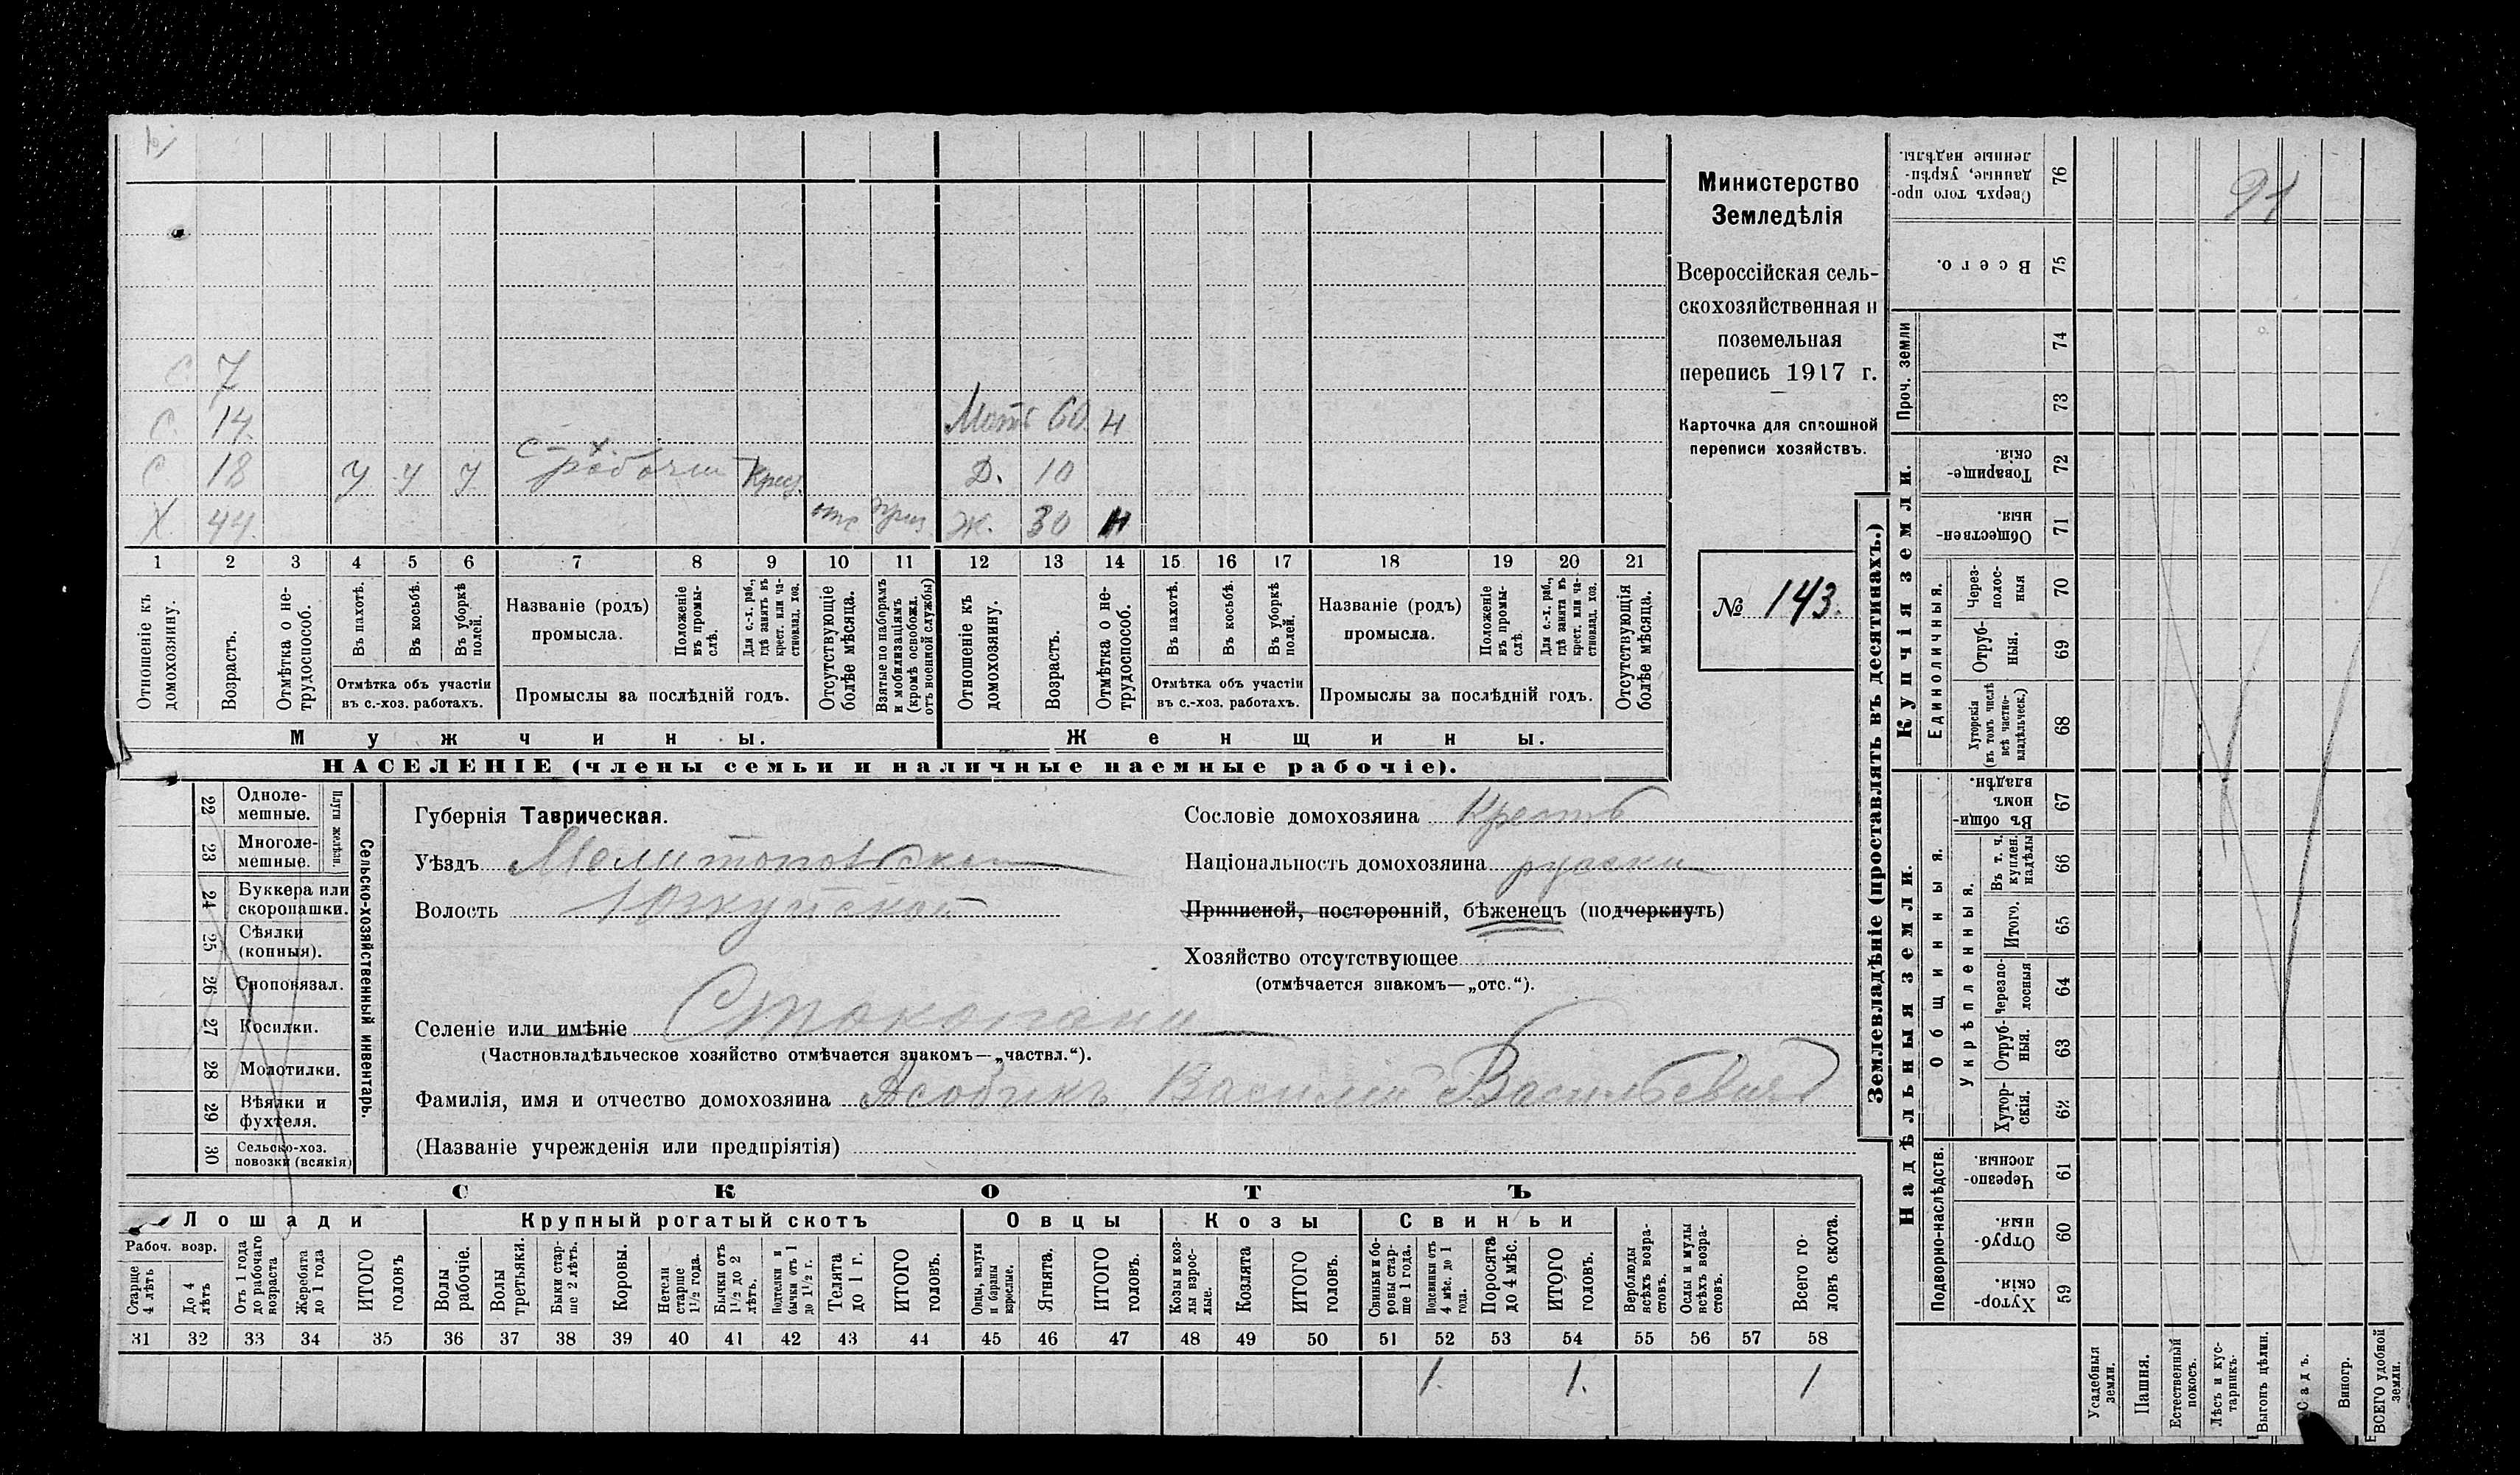 С 7
С. 14. Мать 60. Н
С 18 У У У с-х. рабочий Крес. Д. 10
Х. 44. отс Приз Ж. 30 Н
1 2 3 4 5 6 7 8 9 10 11 12 13 14 15 16 17 18 19 20 21
Отношеніе къ домохозяину.
Возрастъ.
Отмѣтка о не-трудоспособ.
Въ пахотѣ.
Въ косьбѣ.
Въ уборкѣ полей.
Отмѣтка объ участіи
въ с.-хоз. работахъ.
Названіе (родъ)
промысла.
Положеніе въ промы-слѣ.
Для с.-х. раб., гдѣ занятъ въ крест. или ча-стновлад. хоз.
Промыслы за послѣдній годъ.
Отсутствующіе болѣе мѣсяца.
Взятые по наборамъ и мобилизаціямъ (кромѣ освобожд. отъ военной службы)
Отношеніе къ домохозяину.
Возрастъ.
Отмѣтка о не-трудоспособ.
Въ пахотѣ.
Въ косьбѣ.
Въ уборкѣ полей.
Отмѣтка объ участіи
въ с.-хоз. работахъ.
Названіе (родъ)
промысла.
Положеніе въ промы-слѣ.
Для с.-х. раб., гдѣ занята въ крест. или ча-стновлад. хоз.
Промыслы за послѣдній годъ.
Отсутствующія болѣе мѣсяца.
Мужчины.
Женщины.
НАСЕЛЕНІЕ (члены семьи и наличные наемные рабочіе).
Министерство
Земледѣлія
Всероссійская сель-
скохозяйственная и
поземельная
перепись 1917 г.
Карточка для сплошной
переписи хозяйствъ.
№ 143.
22 Одноле-мешные.
23 Многоле-мешные.
Плуги желѣзн.
24 Буккера или скоропашки.
25 Сѣялки (конныя).
26 Сноповязал.
27 Косилки.
28 Молотилки.
29 Вѣялки и фухтеля.
30 Сельско-хоз. повозки (всякія)
Сельско-хозяйственный инвентарь.
Губернія Таврическая.
Уѣздъ Мелитопольскій
Волость Юзкуйской
Селеніе или имѣніе Стокопани
(Частновладѣльческое хозяйство отмѣчается знакомъ—„частвл.“).
Фамилія, имя и отчество домохозяина Василій Васильевичъ
(Названіе учрежденія или предпріятія)
Сословіе домохозяина Крестъ
Національность домохозяина русскій
Приписной, посторонній, бѣженецъ (подчеркнуть)
Хозяйство отсутствующее
(отмѣчается знакомъ—„отс.“).
СКОТЪ
Лошади
Крупный рогатый скотъ
Овцы
Козы
Свиньи
Рабоч. возр.
Старше 4 лѣтъ
До 4 лѣтъ
Отъ 1 года до рабочаго возраста
Жеребята до 1 года
ИТОГО головъ
Волы рабочіе.
Волы третьяки.
Быки стар-ше 2 лѣтъ.
Коровы.
Нетели старше 1½ года.
Бычки отъ 1½ до 2 лѣтъ.
Подтелки и бычки отъ 1 до 1½ г.
Телята до 1 г.
ИТОГО головъ.
Овцы, валухи и бараны взрослые.
Ягнята.
ИТОГО головъ.
Козы и коз-лы взрос-лые.
Козлята
ИТОГО головъ.
Свиньи и бо-ровы стар-ше 1 года.
Подсвинки отъ 4 мѣс. до 1 года.
Поросята до 4 мѣс.
ИТОГО головъ.
Верблюды всѣхъ возра-стовъ.
Ослы и мулы всѣхъ возра-стовъ.
Всего го-ловъ скота.
31 32 33 34 35 36 37 38 39 40 41 42 43 44 45 46 47 48 49 50 51 52 53 54 55 56 57 58
1. 1. 1
Землевладѣніе (проставлять въ десятинахъ.)
Проч. земли
Купчія земли.
Единоличныя.
Надѣльныя земли.
Общинныя.
Укрѣпленныя.
Подворно-наслѣдств.
Сверхъ того про-данные, укрѣп-ленные надѣлы. 76
Всего. 75
74
73
Товарище-скія. 72
Обществен-ныя. 71
Через-полос-ныя 70
Отруб-ныя. 69
Хуторскія (въ томъ числѣ всѣ частно-владѣльческ.) 68
Въ общин-номъ владѣн. 67
Въ т. ч. куплен. надѣлы 66
Итого. 65
Черезпо-лосныя 64
Отруб-ныя. 63
Хутор-скія. 62
Черезпо-лосныя. 61
Отруб-ныя. 60
Хутор-скія. 59
91
Усадебныя земли.
Пашня.
Естественный покосъ.
Лѣсъ и кус-тарникъ.
Выгонъ цѣлин.
Садъ.
Виногр.
ВСЕГО удобной земли.